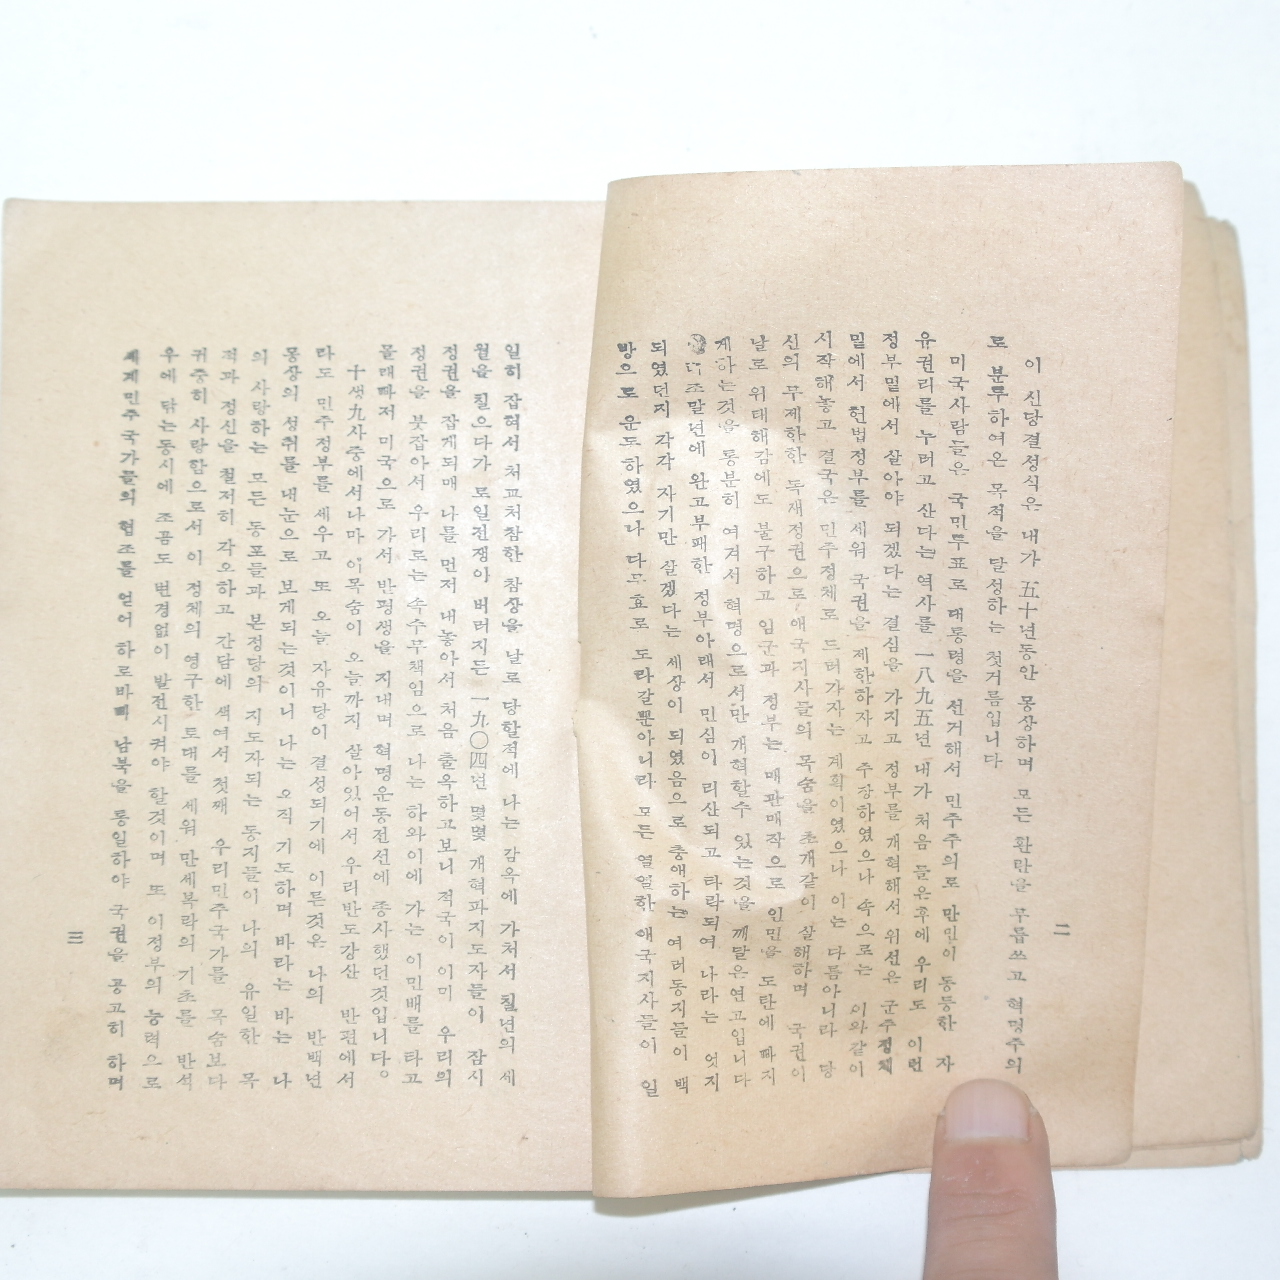 이 신당결성식은 내가 五十년동안 몽상하며 모든 환란을 무릅쓰고 혁명주의
로 분투하여온 목적을 달성하는 첫거름입니다
미국사람들은 국민투표로 대통령을 선거해서 민주주의로 만인이 동등한 자
유권리를 누러고 산다는 역사를 一八九五년 내가 처음 들은후에 우리도 이런
정부밑에서 살아야 되겠다는 결심을 가지고 정부를 개혁해서 위선은 군주정체
밑에서 헌법정부를 세워 국권을 제한하자고 주장하였으나 속으로는 이와같이
시작해놓고 결국은 민주정체로 드러가자는 계획이였으나 이는 다름아니라 당
신의 무제한한 독재정권으로 애국지사들의 목숨을 초개같이 살해하며 국권이
날로 위태해감에도 불구하고 임군과 정부는 매판매작으로 인민을 도탄에 빠지
게하는것을 통분히 여겨서 혁명으로서만 개혁할수 있는것을 깨달은연고입니다
조말년에 완고부패한 정부아래서 민심이 리산되고 타락되여 나라는 엇지
되였던지 각각 자기만 살겠다는 세상이 되였음으로 충애하는 여러동지들이 백
방으로 운도하였으나 다무효로 도라갈뿐아니라 모든 열열한 애국지사들이 일
二
일히 잡혀서 처교처참한 참상을 날로 당할적에 나는 감옥에 가처서 칠년의 세
월을 칠으다가 로일전쟁아 버러지든 一九〇四년 몇몇 개혁파지도자들이 잠시
정권을 잡게되매 나를 먼저 내놓아서 처음 출옥하고보니 적국이 이미 우리의
정권을 붓잡아서 우리로는 속수무책임으로 나는 하와이에 가는 이민배를 타고
몰래빠저 미국으로 가서 반평생을 지내며 혁명운동전선에 종사했던것입니다。
十생九사중에서나마 이목숨이 오늘까지 살아있어서 우리반도강산 반편에서
라도 민주정부를 세우고 또 오늘 자유당이 결성되기에 이른것은 나의 반백년
몽상의 성취를 내눈으로 보게되는것이니 나는 오직 기도하며 바라는 바는 나
의 사랑하는 모든 동포들과 본정당의 지도자되는 동지들이 나의 유일한 목
적과 정신을 철저히 각오하고 간담에 색여서 첫째 우리민주국가를 목숨보다
귀중히 사랑함으로서 이 정체의 영구한 토대를 세워 만세복락의 기초를 반석
우에 닦는동시에 조곰도 변경없이 발전시켜야 할것이며 또 이정부의 능력으로
세계민주국가들의 협조를 얻어 하로바삐 남북을 통일하야 국권을 공고히 하며
三